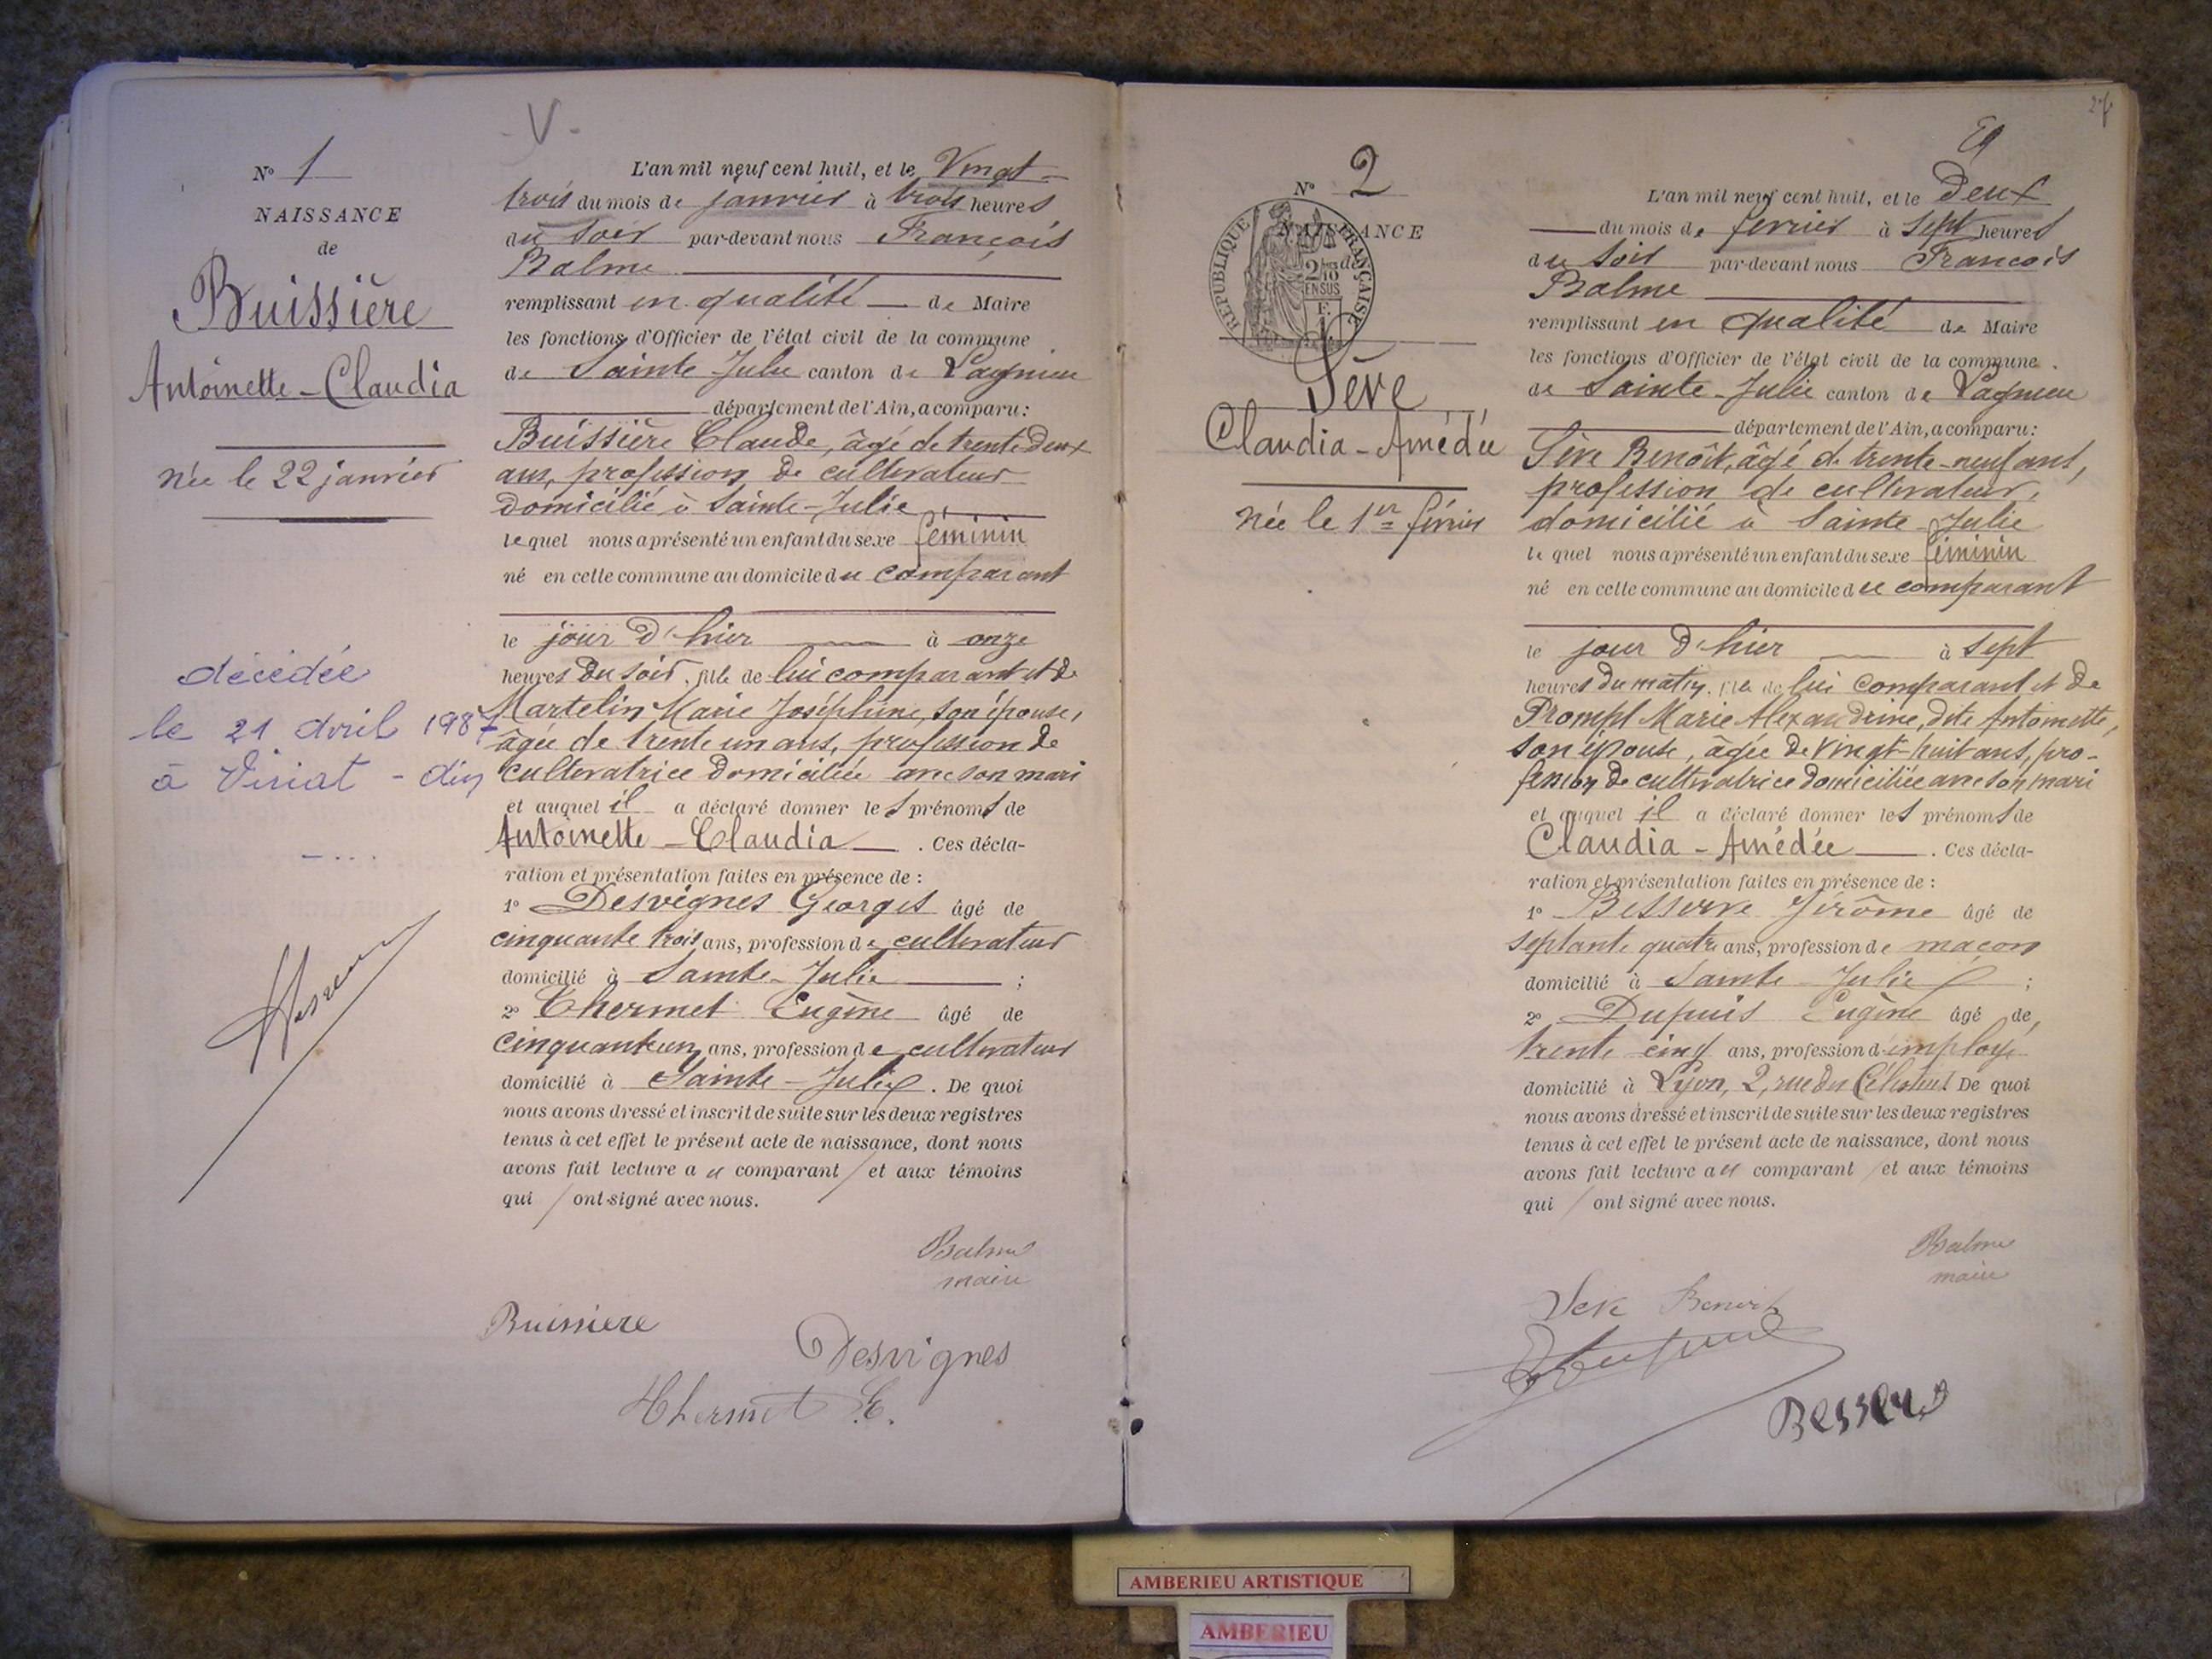 - V -
N° 1
NAISSANCE
de
Buissière
Antoinette - Claudia
Née le 22 janvier
décédée
le 21 Avril 1987
à Viriat - Ain
L'an mil neuf cent huit, et le Vingt-
trois du mois de janvier à trois heures
du soir par-devant nous François
Balme
remplissant en qualité de Maire
les fonctions d'Officier de l'état civil de la commune
de Sainte Julie canton de Lagnieu
département de l'Ain, a comparu:
Buissière Claude, âgé de trente deux
ans, profession de cultivateur
domicilié à Sainte-Julie
lequel nous a présenté un enfant du sexe féminin
né en cette commune au domicile du comparant
le jour d'hier à onze
heures du soir, fille de lui comparant et de
Martelin Marie Joséphine, son épouse,
âgée de trente un ans, profession de
cultivatrice domiciliée avec son mari
et auquel il a déclaré donner les prénoms de
Antoinette - Claudia . Ces décla-
ration et présentation faites en présence de :
1° Desvignes Georges âgé de
cinquante trois ans, profession de cultivateur
domicilié à Sainte-Julie ;
2° Thermet Eugène âgé de
cinquante un ans, profession de cultivateur
domicilié à Sainte-Julie . De quoi
nous avons dressé et inscrit de suite sur les deux registres
tenus à cet effet le présent acte de naissance, dont nous
avons fait lecture au comparant / et aux témoins
qui / ont signé avec nous.
Balme
maire
Buissiere
Desvignes
Thermet E.
N° 2
NAISSANCE
de
RÉPUBLIQUE FRANÇAISE
2/10 EN SUS
Sève
Claudia - Amédée
Née le 1er février
L'an mil neuf cent huit, et le Deux
du mois de fevrier à sept heures
du soir par-devant nous François
Balme
remplissant en qualité de Maire
les fonctions d'Officier de l'état civil de la commune
de Sainte-Julie canton de Lagnieu
département de l'Ain, a comparu:
Sève Benoît, âgé de trente-neuf ans,
profession de cultivateur,
domicilié à Sainte Julie
lequel nous a présenté un enfant du sexe féminin
né en cette commune au domicile du comparant
le jour d'hier à sept
heures du matin, fille de lui comparant et de
Prompt Marie Alexandrine, dite Antoinette,
son épouse, âgée de vingt-huit ans, pro-
fession de cultivatrice domiciliée avec son mari
et auquel il a déclaré donner les prénoms de
Claudia - Amédée . Ces décla-
ration et présentation faites en présence de :
1° Besserve Jerôme âgé de
septante quatre ans, profession de maçon
domicilié à Sainte Julie ;
2° Dupuis Eugène âgé de
trente cinq ans, profession d'employé
domicilié à Lyon, 2, rue des Célestins De quoi
nous avons dressé et inscrit de suite sur les deux registres
tenus à cet effet le présent acte de naissance, dont nous
avons fait lecture au comparant / et aux témoins
qui / ont signé avec nous.
Balme
maire
Seve Benoit
AMBERIEU ARTISTIQUE
AMBERIEU